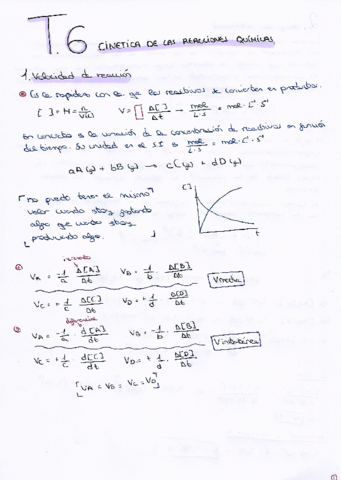 T.6 CINÉTICA DE LAS REACCIONES QUÍMICAS
1. Velocidad de reacción
Es la rapidez con la que los reactivos se convierten en productos.
[ ] = M = n/V(L) V = [ ] Δ[A]/Δt → mol/L·s = mol·L⁻¹·s⁻¹
En concreto es la variación de la concentración de reactivos en función
del tiempo. Su unidad en el S.I es mol/L·s = mol·L⁻¹·s⁻¹
aA (g) + bB (g) → cC (g) + dD (g)
no puedo tener el mismo
valor cuando estoy gastando
algo que cuando estoy
produciendo algo.
[ ]
t
a)
VA = -1/a Δ[A]/Δt VB = -1/b · Δ[B]/Δt
V media
VC = +1/c · Δ[C]/Δt VD = +1/d · Δ[D]/Δt
b)
VA = -1/a · d[A]/dt VB = -1/b · Δ[B]/Δt
V instantánea
VC = +1/c · d[C]/dt VD = +1/d · Δ[D]/Δt
[VA = VB = VC = VD]